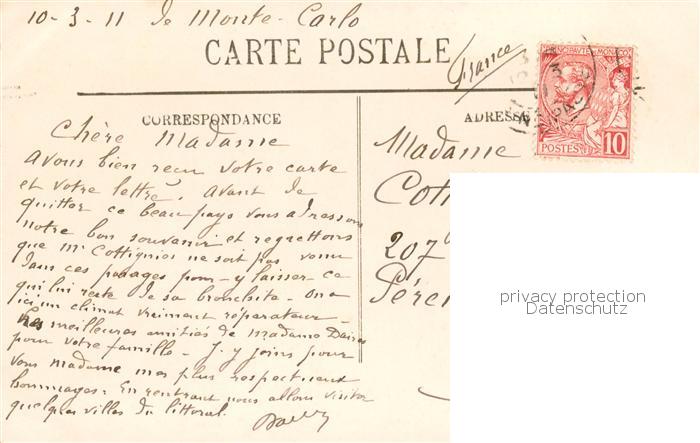 10-3-11 de Monte-Carlo
CARTE POSTALE
France
CORRESPONDANCE
ADRESSE
PRINCIPAUTE DE MONACO
POSTES
10
Chère Madame
avons bien reçu votre carte
et votre lettre, avant de
quitter ce beau pays vous adressons
notre bon souvenir et regrettons
que Mr Cottignies ne soit pas venu
dans ces parages pour y laisser ce
qui lui reste de sa bronchite - On a
ici un climat vraiment réparateur -
Les meilleures amitiés de Madame
pour votre famille - J'y joins pour
vous Madame mes plus respectueux
hommages. En rentrant nous allons visiter
quelques villes du littoral.
Madame
Cott
207
Péren
privacy protection
Datenschutz